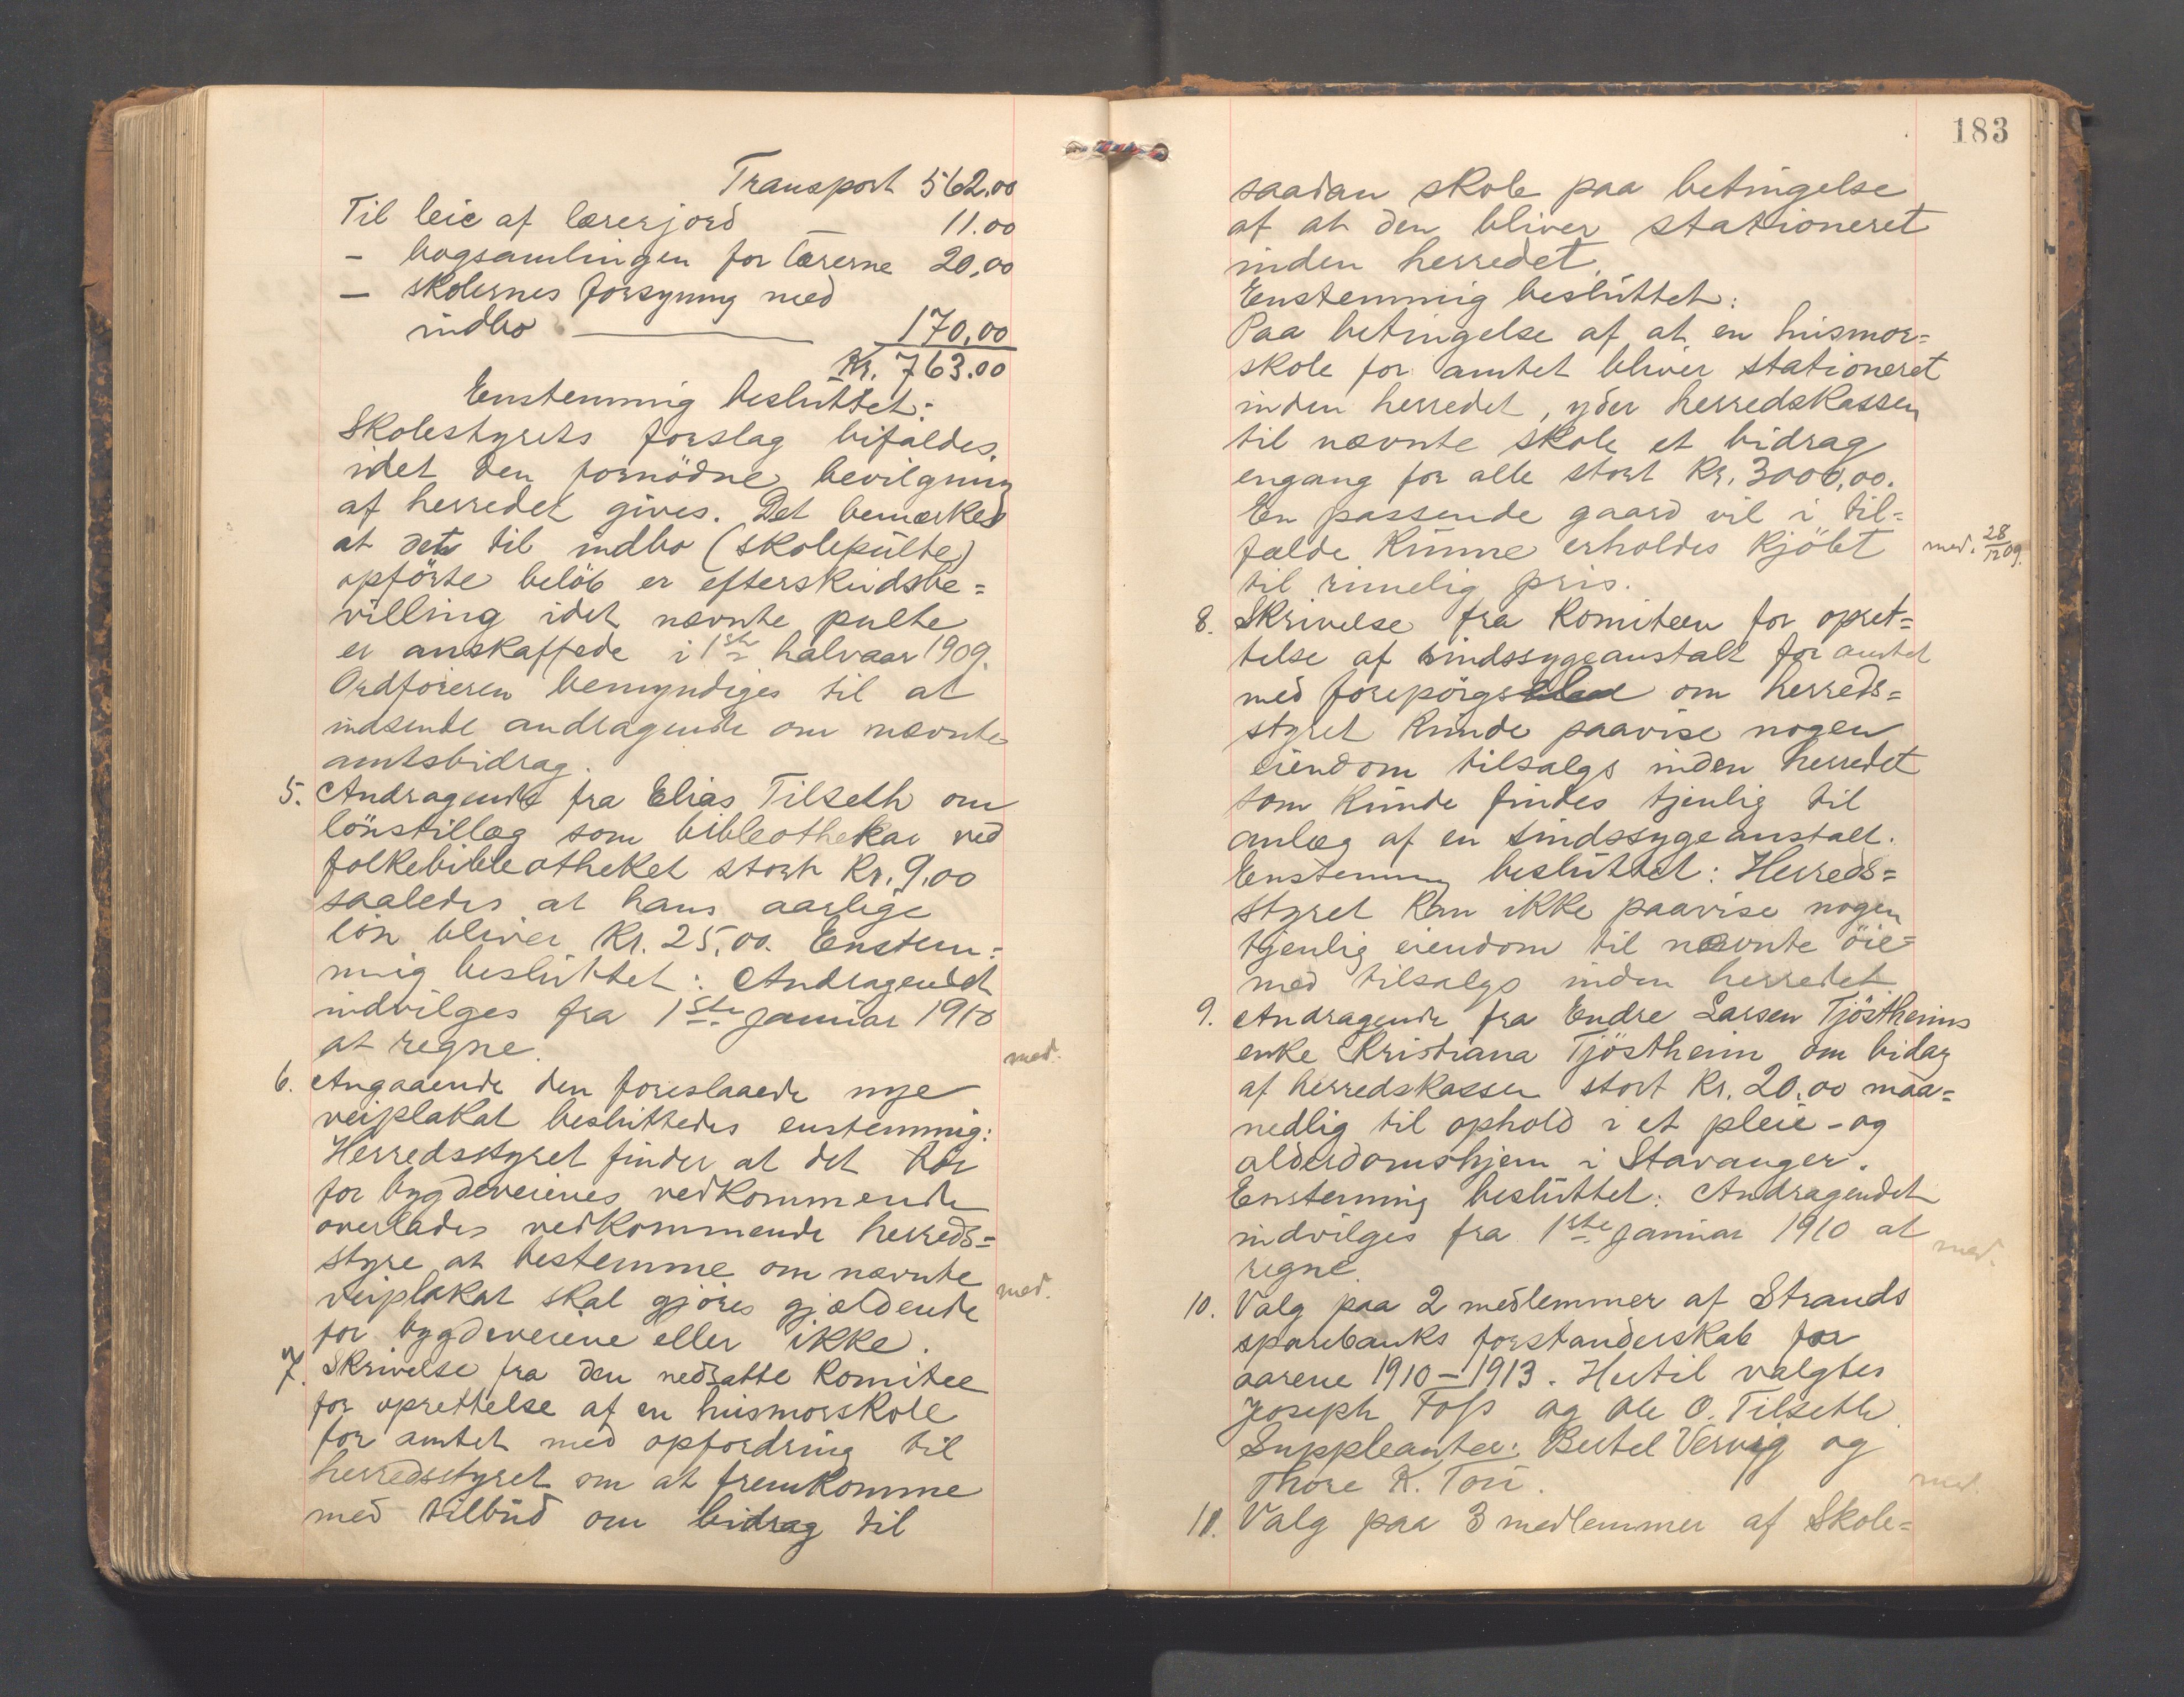 Transport 562.00
Til leie af lærerjord 11.00
- bogsamlingen for lærerne 20,00
- skolernes forsyning med
indbo 170,00
Kr. 763.00
Enstemmig besluttet:
Skolestyrets forslag bifaldes,
idet den fornödne bevilgning
af herredet gives. Det bemærkes
at det til indbo (skolepulte)
opförte belöb er efterskudsbe=
villing idet nævnte pulte
er anskaffede i 1ste halvaar 1909.
Ordföreren bemyndiges til at
indsende andragende om nævnte
amtsbidrag.
5. Andragende fra Elias Tilseth om
lönstillæg som bibleothekar ved
folkebibleotheket stort Kr. 9,00
saaledes at hans aarlige
lön bliver Kr. 25,00. Enstem=
mig besluttet: Andragendet
indvilges fra 1ste januar 1910
at regne.
med.
6. Angaaende den foreslaaede nye
veiplakat besluttedes enstemmig:
Herredsstyret finder at det bör
for bygdeveienes vedkommende
overlades vedkommende herreds=
styre at bestemme om nævnte
veiplakat skal gjöres gjældende
med.
for bygdeveiene eller ikke.
7. Skrivelse fra den nedsatte Komitee
for oprettelse af en husmorskole
for amtet med opfordring til
herredsstyret om at fremkomme
med tilbud om bidrag til
183
saadan skole paa betingelse
af at den bliver stationeret
inden herredet.
Enstemmig besluttet:
Paa betingelse af at en husmor=
skole for amtet bliver stationeret
inden herredet, yder herredskassen
til nævnte skole et bidrag
engang for alle stort Kr. 3000,00.
En passende gaard vil i til=
fælde kunne erholdes kjöbt
med. 28/12 09.
til rimelig pris.
8. Skrivelse fra Komiteen for opret=
telse af sindssygeanstalt for amtet
med forespörgsel om herreds=
styret kunde paavise nogen
eiendom tilsalgs inden herredet
som kunde findes tjenlig til
anlæg af en sindssygeanstalt.
Enstemmig besluttet: Herreds=
styret kan ikke paavise nogen
tjenlig eiendom til nævnte öie=
med tilsalgs inden herredet
9. Andragende fra Endre Larsen Tjöstheims
enke Kristiana Tjöstheim om bidag
af herredskassen stort Kr. 20,00 maa=
nedlig til ophold i et pleie- og
alderdomshjem i Stavanger.
Enstemmig besluttet: Andragendet
indvilges fra 1ste januar 1910 at
med.
regne.
10. Valg paa 2 medlemmer af Strands
sparebanks forstanderskab for
aarene 1910-1913. Hertil valgtes
Joseph Foss og Ole O. Tilseth.
Suppleanter: Bertel Vervig og
Thore K. Tou.
med.
11. Valg paa 3 medlemmer af Skole=